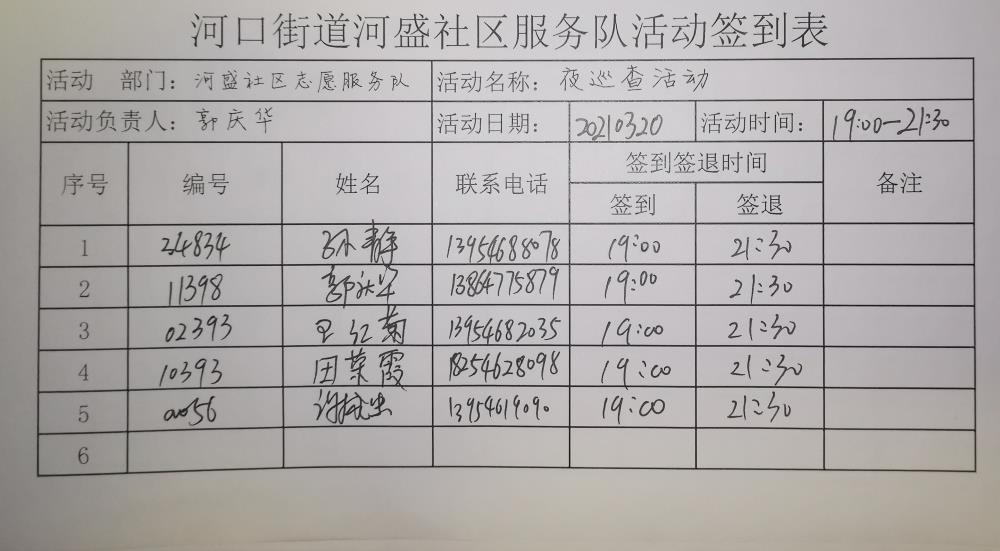 河口街道河盛社区服务队活动签到表
活动 部门：河盛社区志愿服务队 活动名称：夜巡查活动
活动负责人：郭庆华 活动日期：20210320 活动时间：19:00-21:30
序号 编号 姓名 联系电话 签到签退时间 备注
签到 签退
1 34834 孙静 13954688078 19:00 21:30
2 11398 郭庆华 13864775879 19:00 21:30
3 02393 王红菊 13954682035 19:00 21:30
4 10393 田荣霞 18254628098 19:00 21:30
5 13954619090 19:00 21:30
6